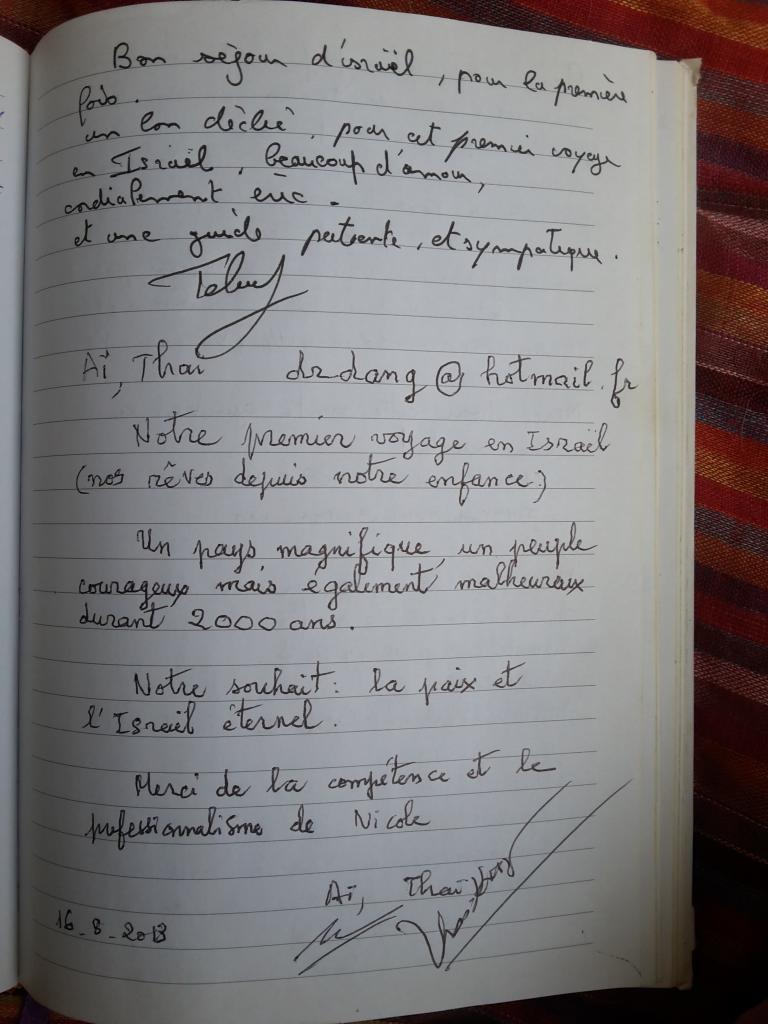 Bon séjour d'israël, pour la première
fois.
un bon déclic, pour cet premier voyage
en Israël, beaucoup d'amour,
cordialement éric.
et une guide patiente, et sympatique.
Aï, Thaï drdang@hotmail.fr
Notre premier voyage en Israël
(nos rêves depuis notre enfance)
Un pays magnifique, un peuple
courageux mais également malheureux
durant 2000 ans.
Notre souhait: la paix et
l'Israël éternel.
Merci de la compétence et le
professionnalisme de Nicole
Aï, Thaï
16-8-2013